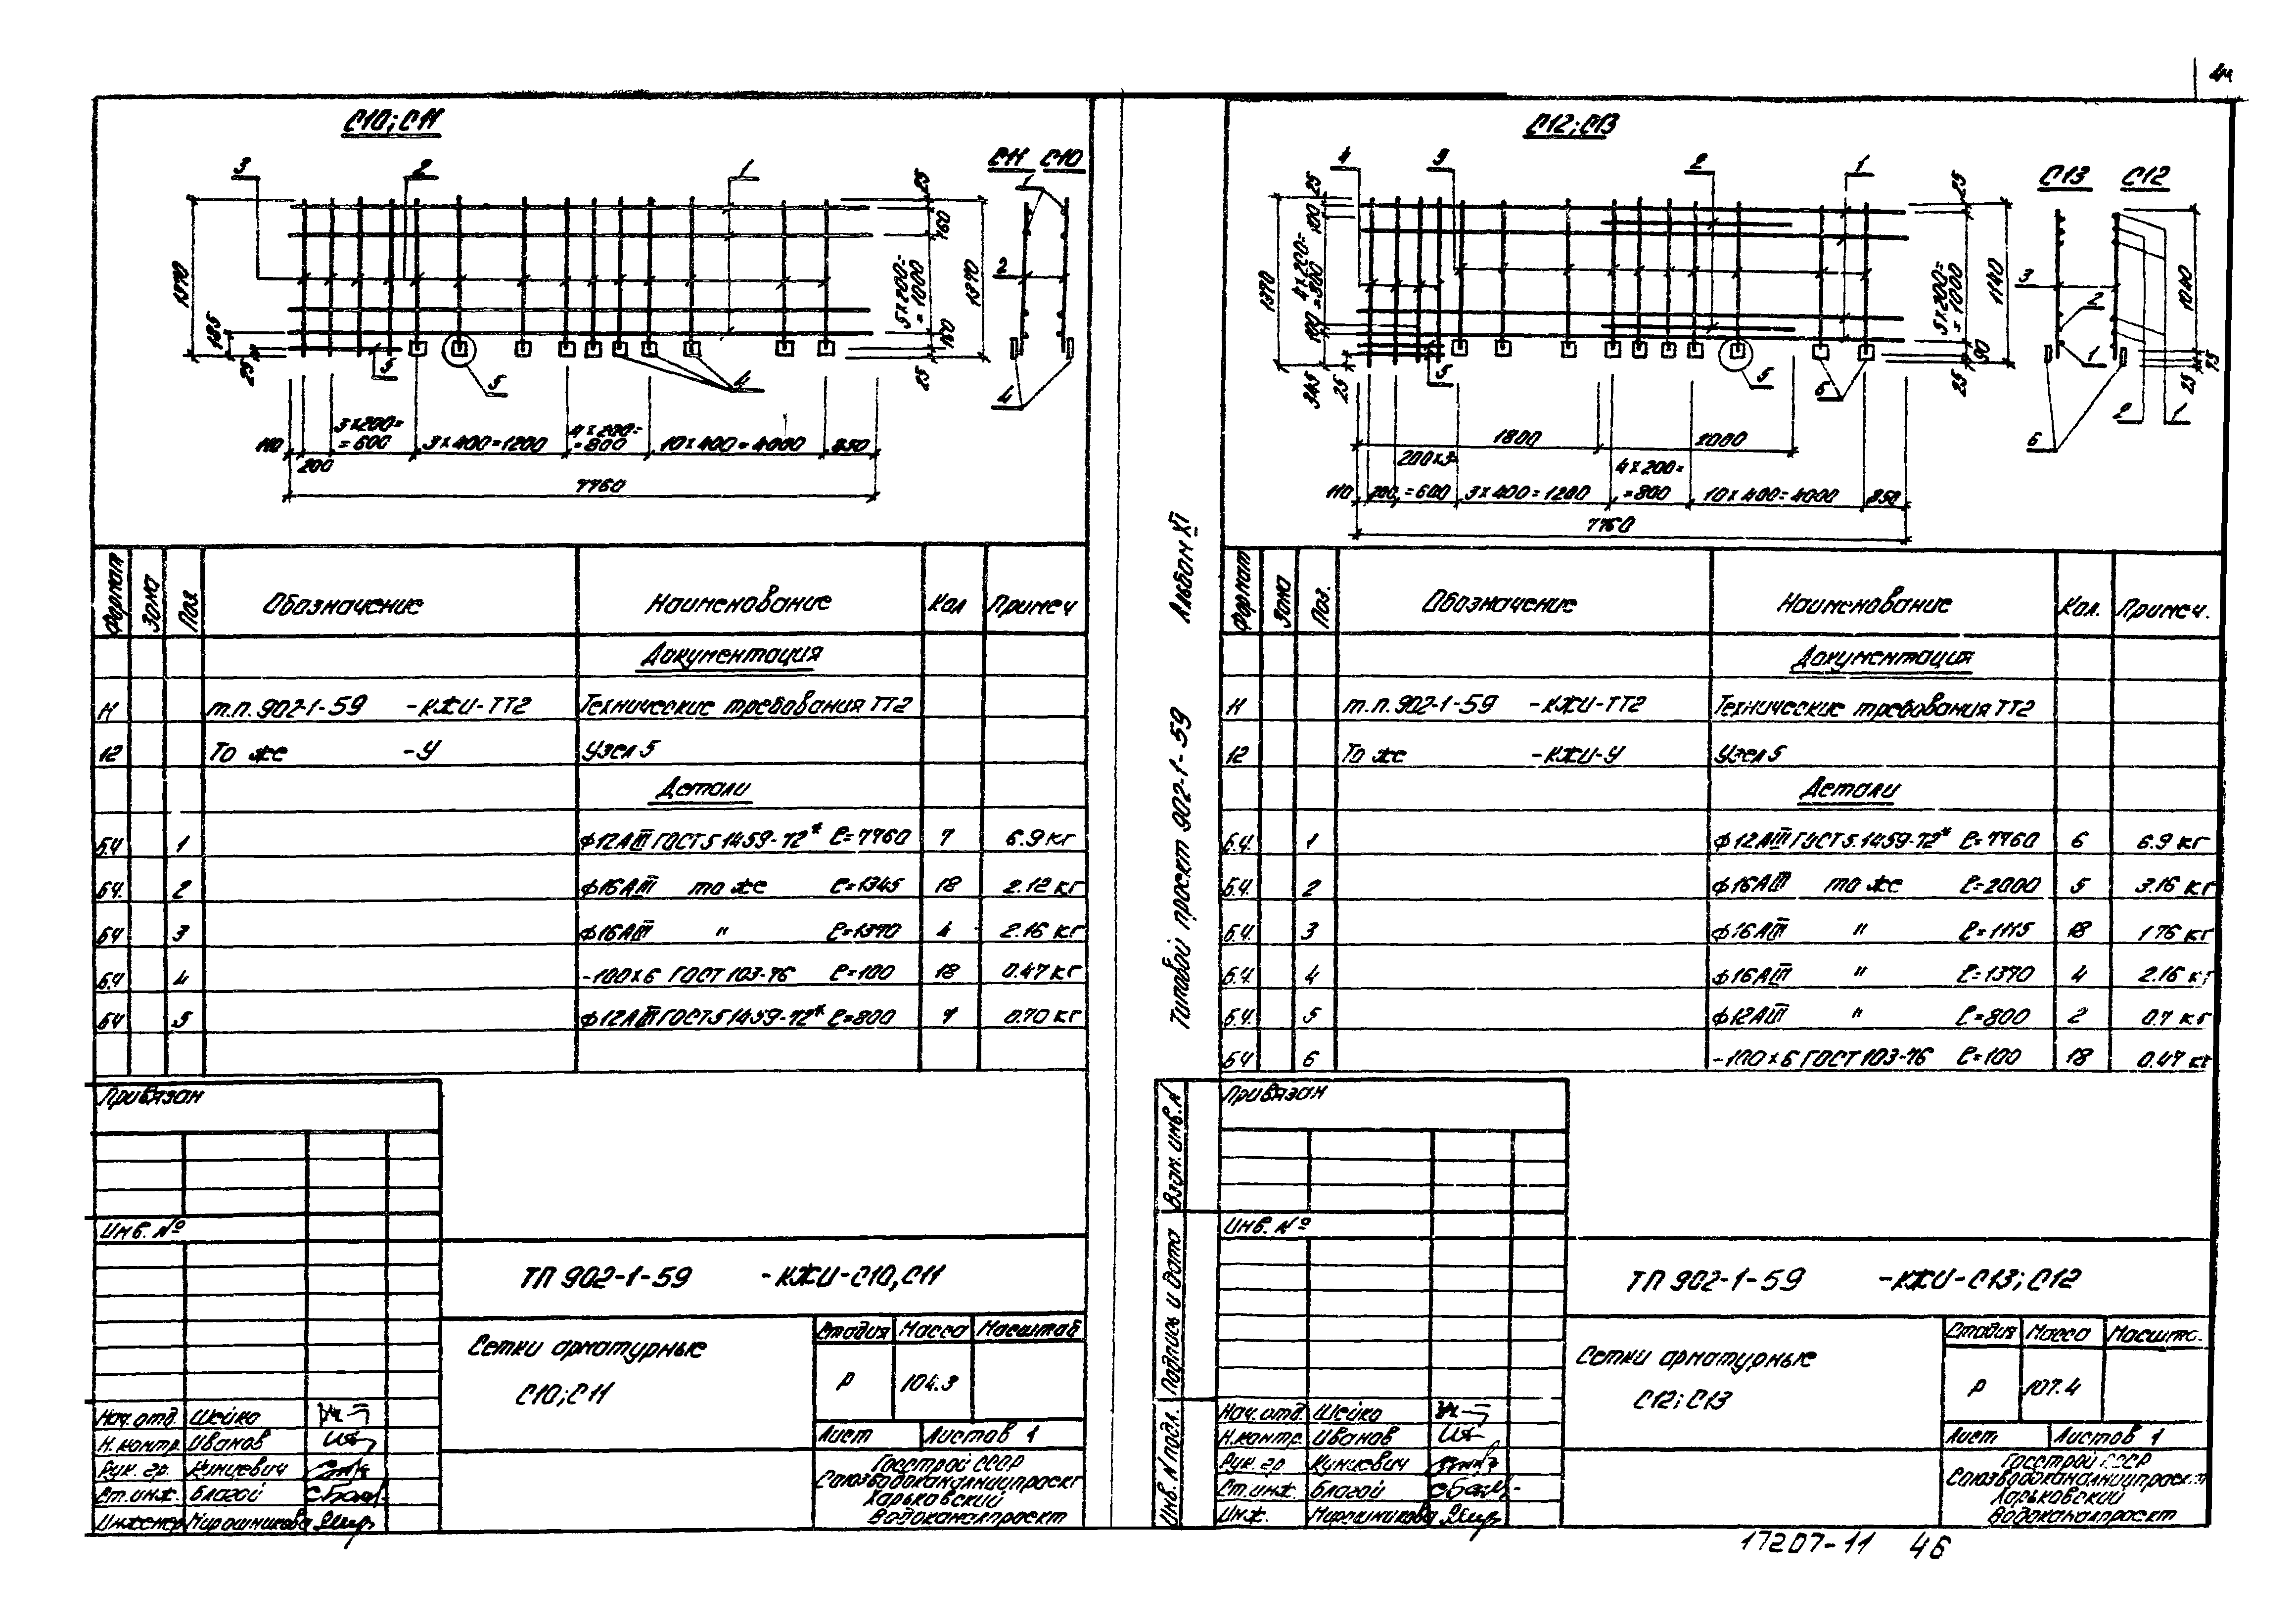 44
С10; С11
3
2
1
С11 С10
1
25
160
5×200=
=1000
160
25
1370
1370
185
25
5
5
4
2
4
110
200
3×200=
=600
3×400=1200
4×200=
=800
10×400=4000
850
7760
Формат Зона Поз. Обозначение Наименование Кол Примеч
Документация
11 т.п. 902-1-59 -КЖИ-ТТ2 Технические требования ТТ2
12 То же -У Узел 5
Детали
БЧ 1 ф12АIII ГОСТ 5.1459-72* ℓ=7760 7 6.9 кг
БЧ. 2 ф16АIII то же ℓ=1345 18 2.12 кг
БЧ 3 ф16АIII " ℓ=1370 4 2.16 кг
БЧ 4 -100×6 ГОСТ 103-76 ℓ=100 18 0.47 кг
БЧ 5 ф12АIII ГОСТ 5.1459-72* ℓ=800 1 0.70 кг
Привязан
Инв. №
ТП 902-1-59 -КЖИ-С10,С11
Сетки арматурные
С10; С11
Стадия Масса Масштаб
Р 104.3
Лист Листов 1
Нач. отд. Шейко
Н. контр. Иванов
Рук. гр. Кунцевич
Ст. инж. Благой
Инженер Мирошникова
Госстрой СССР
Союзводоканалниипроект
Харьковский
Водоканалпроект
Альбом XI
Типовой проект 902-1-59
Взам. инв. №
Подпись и дата
Инв. № подл.
С12; С13
4
3
2
1
С13 С12
25
100
4×200=
=800
100
345
25
1370
25
5×200=
=1000
90
25
1140
5
5
6
3
2
1
6
2
1
1040
25
75
1800
2000
110
200
200×3
=600
3×400=1200
4×200=
=800
10×400=4000
850
7760
Формат Зона Поз. Обозначение Наименование Кол. Примеч.
Документация
11 т.п. 902-1-59 -КЖИ-ТТ2 Технические требования ТТ2
12 То же -КЖИ-У Узел 5
Детали
Б.Ч. 1 ф12АIII ГОСТ 5.1459-72* ℓ=7760 6 6.9 кг
Б.Ч. 2 ф16АIII то же ℓ=2000 5 3.16 кг
Б.Ч. 3 ф16АIII " ℓ=1115 18 1.76 кг
Б.Ч. 4 ф16АIII " ℓ=1370 4 2.16 кг
Б.Ч. 5 ф12АIII " ℓ=800 2 0.7 кг
БЧ 6 -100×6 ГОСТ 103-76 ℓ=100 18 0.47 кг
Привязан
Инв. №
ТП 902-1-59 -КЖИ-С13; С12
Сетки арматурные
С12; С13
Стадия Масса Масшта.
Р 107.4
Лист Листов 1
Нач. отд. Шейко
Н. контр. Иванов
Рук. гр Кунцевич
Ст. инж. Благой
Инж. Мирошникова
Госстрой СССР
Союзводоканалниипроект
Харьковский
Водоканалпроект
17207-11 46